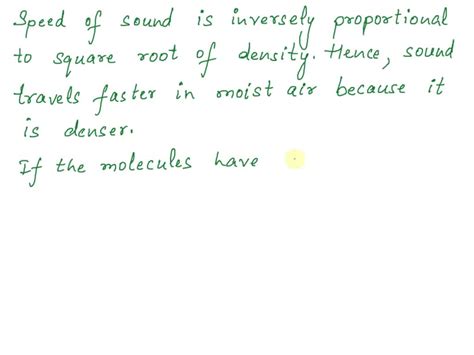 Speed of sound is inversely proportional
to square root of density. Hence, sound
travels faster in moist air because it
is denser.
If the molecules have